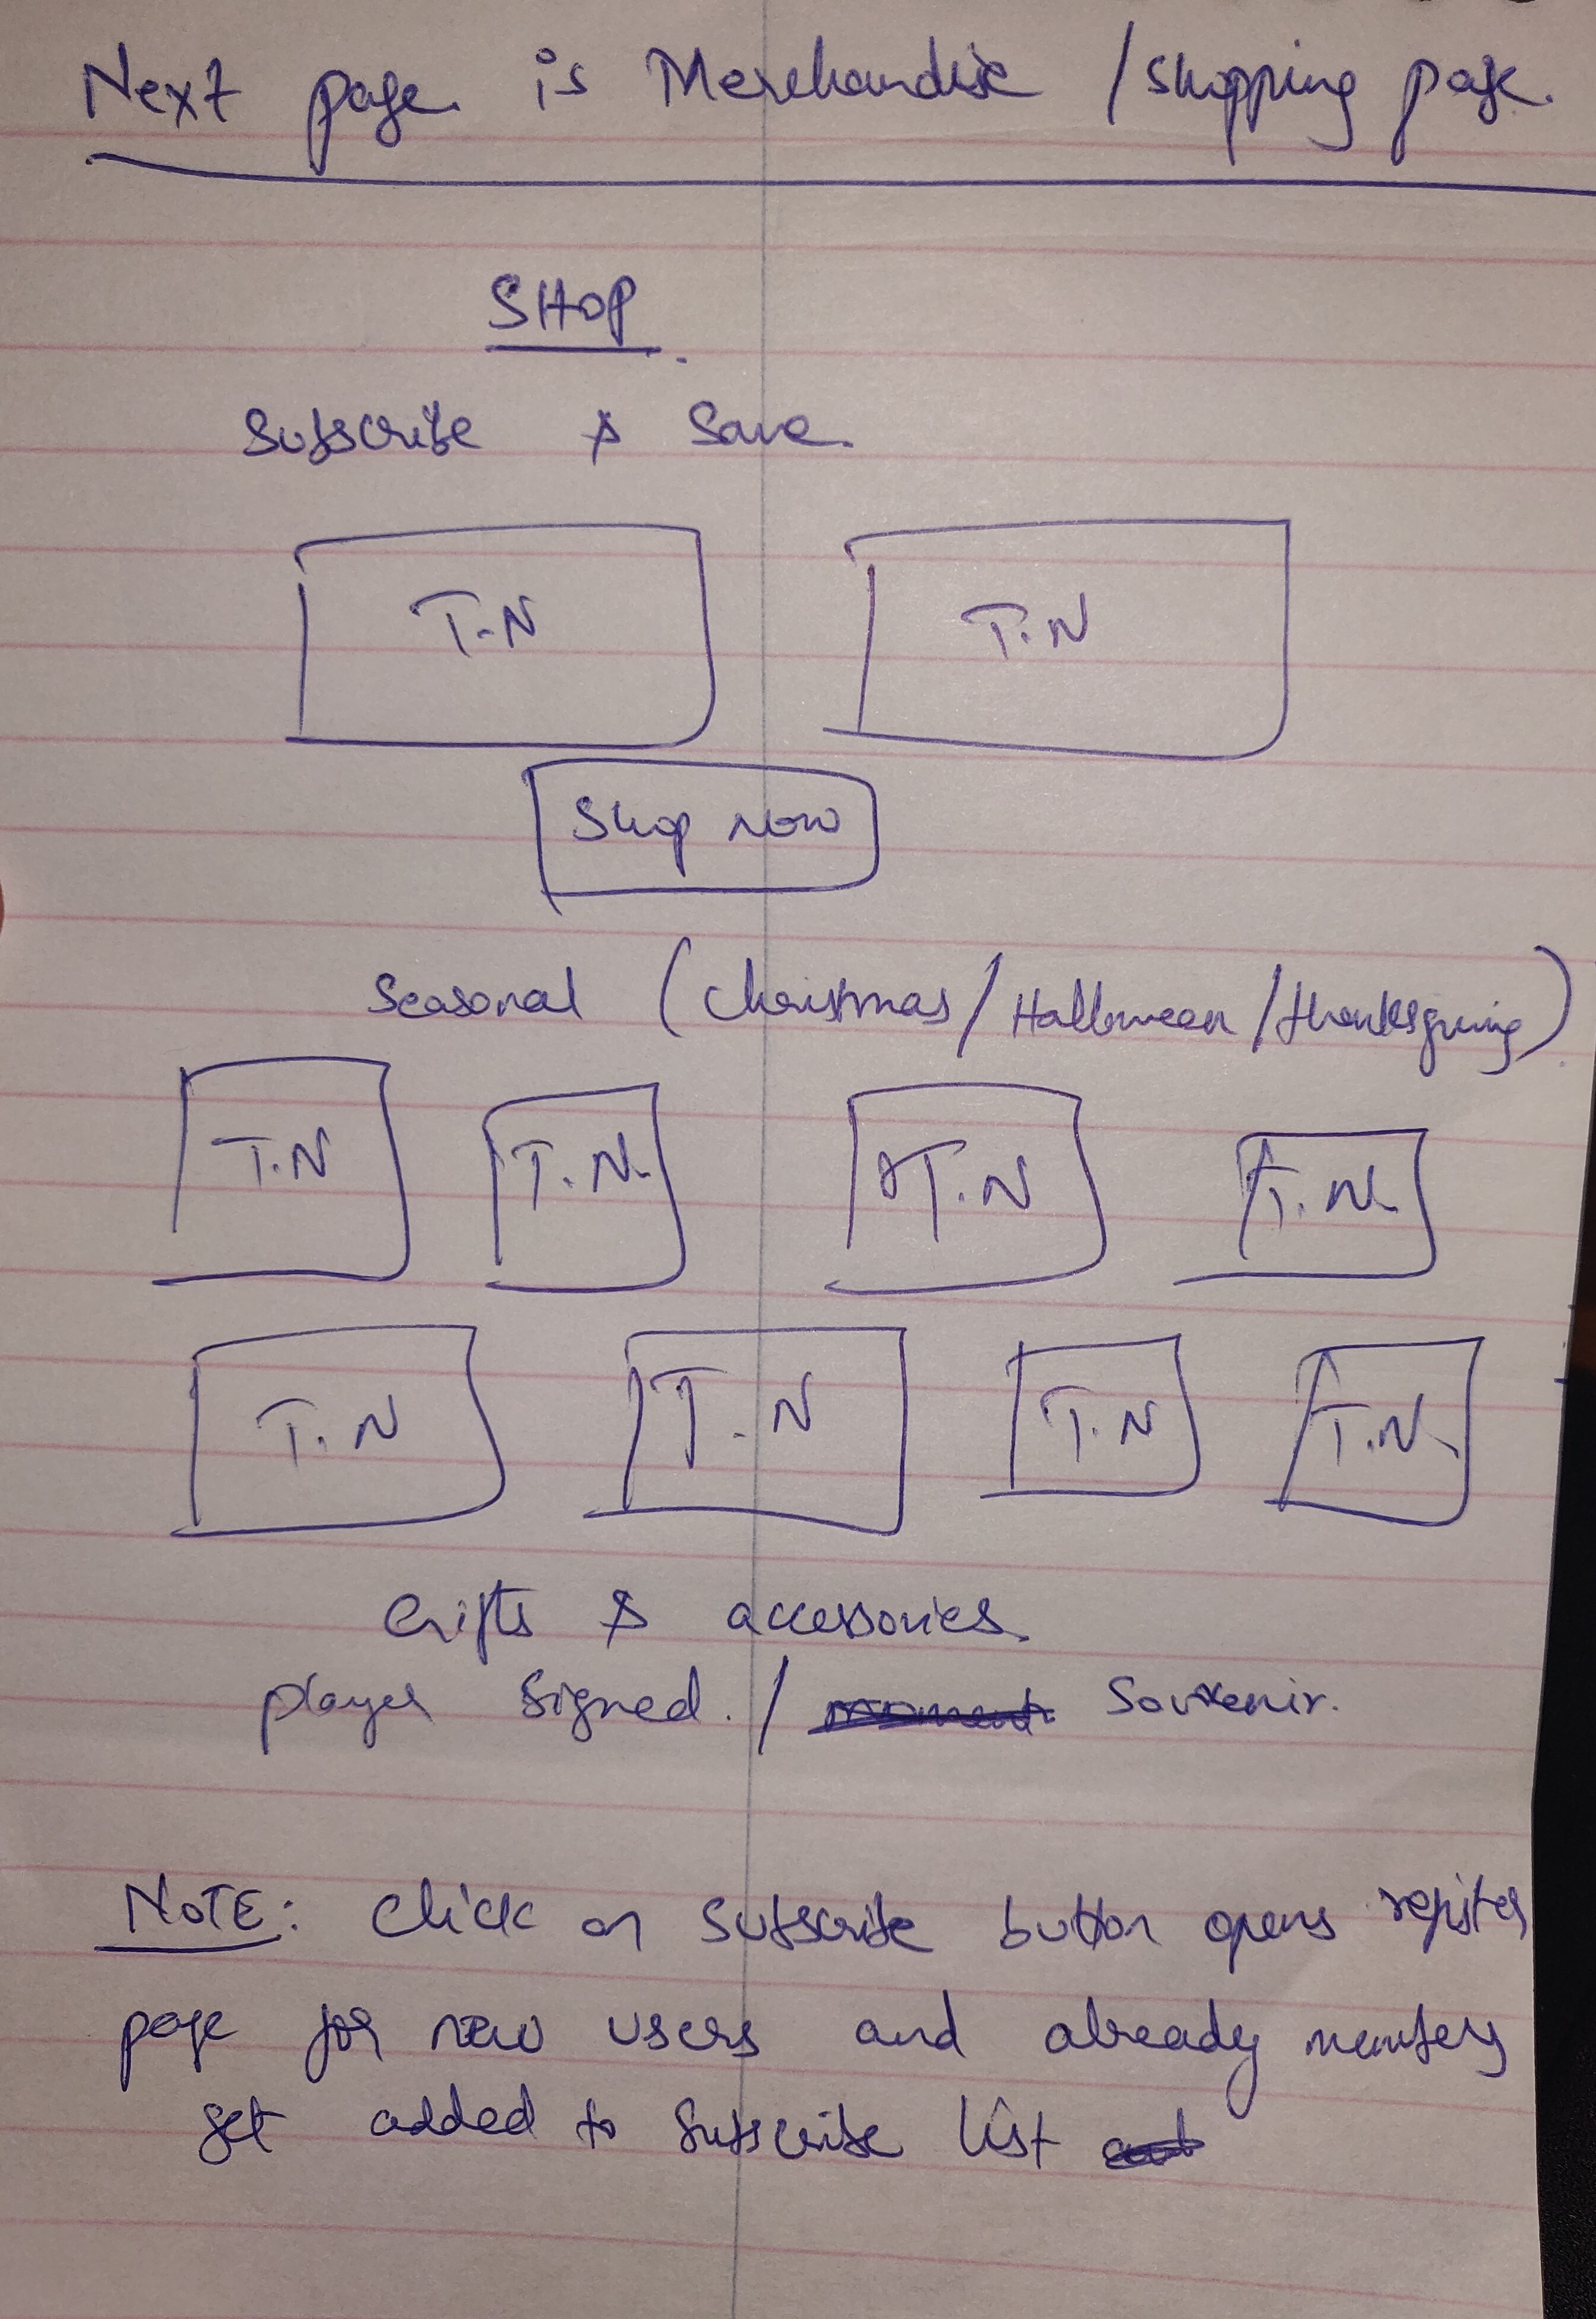 Next page is Merchandise / shopping page.
SHOP
Subscribe & Save.
T.N T.N
Shop now
Seasonal (Christmas / Halloween / thanksgiving)
T.N T.N. T.N T.N.
T.N T.N T.N T.N.
Gifts & accessories.
player signed. / Souvenir.
NOTE: click on subscribe button opens register
page for new users and already members
get added to subscribe list